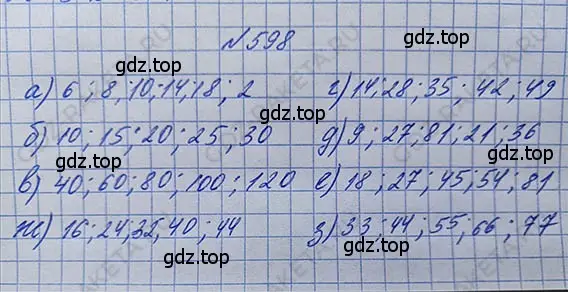 №598
а) 6; 8, 10; 14; 18; 2 г) 14; 28; 35; 42; 49
б) 10; 15; 20; 25; 30 д) 9; 27; 81; 21; 36
в) 40; 60; 80; 100; 120 е) 18; 27; 45; 54; 81
ж) 16; 24; 32, 40; 44 з) 33; 44; 55; 66; 77
gdz.top
gdz.top
gdz.top
gdz.top
gdz.top
gdz.top
gdz.top
gdz.top